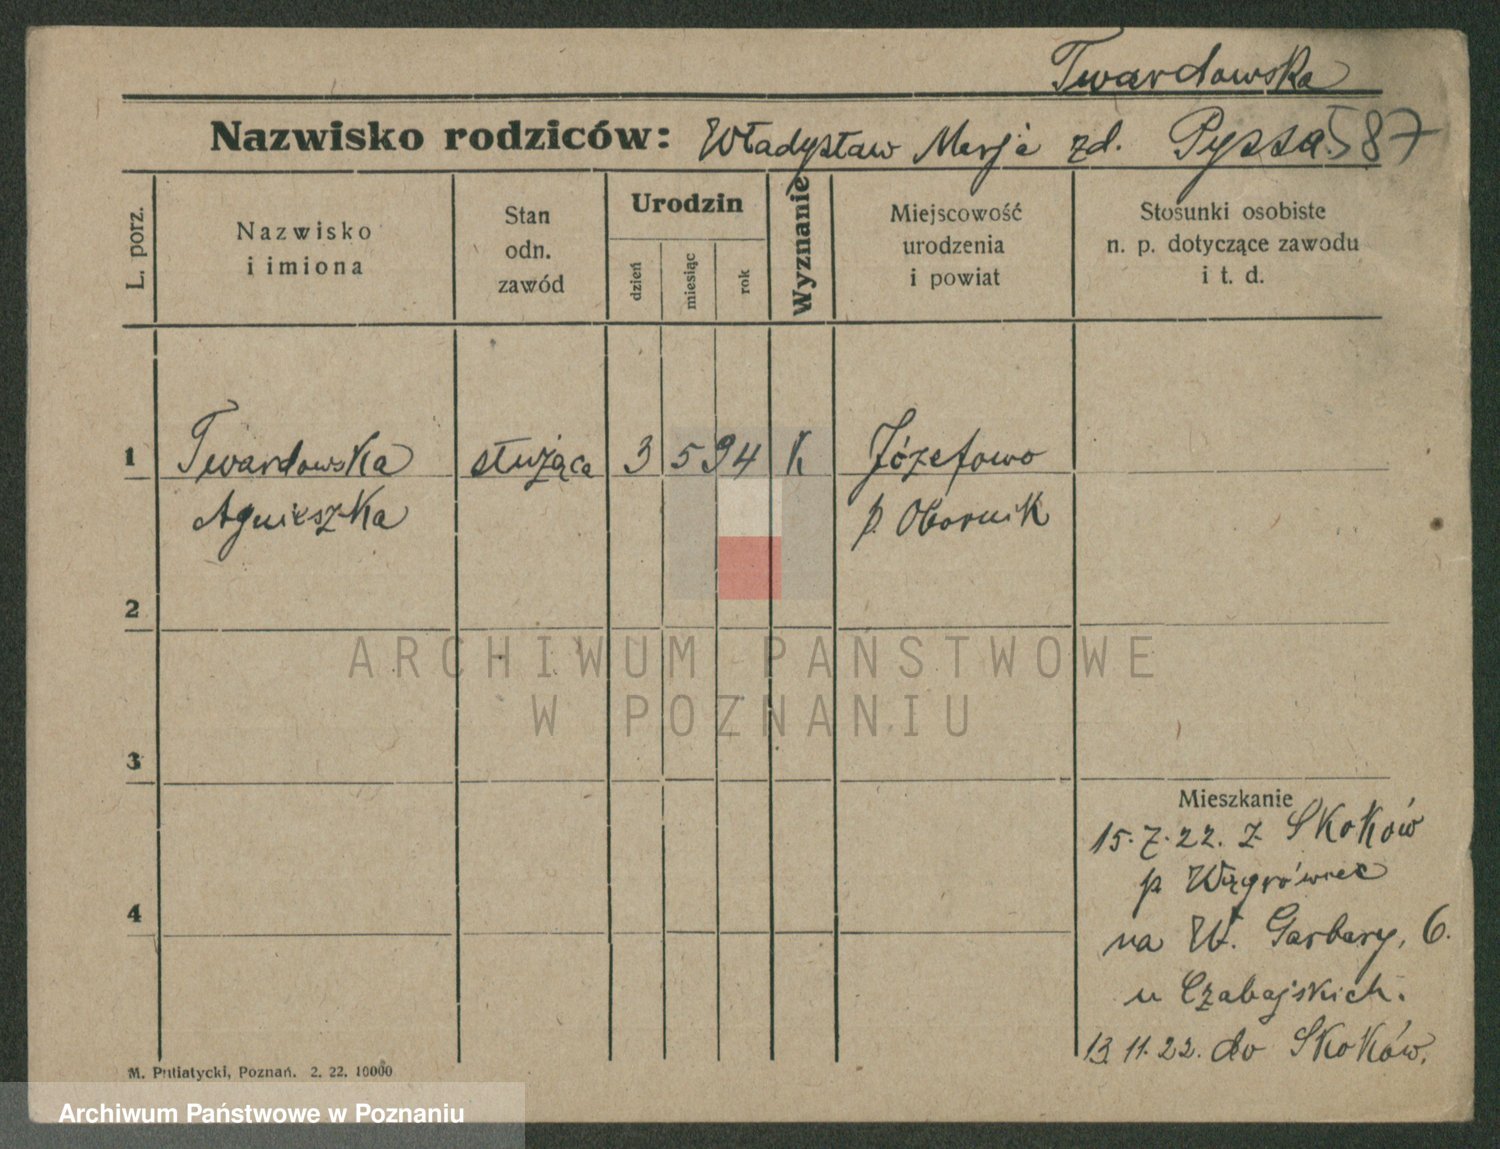 Twardowska
Nazwisko rodziców: Władysław Marja zd. Pyssa 587
L. porz.
Nazwisko
i imiona
Stan
odn.
zawód
Urodzin
dzień
miesiąc
rok
Wyznanie
Miejscowość
urodzenia
i powiat
Stosunki osobiste
n. p. dotyczące zawodu
i t. d.
1 Twardowska służąca 3 5 94 K Józefowo
Agnieszka p. Obornik
2
ARCHIWUM PAŃSTWOWE
W POZNANIU
3
Mieszkanie
15.7.22. z Skoków
p Wągrówiec
4
na W. Garbary, 6.
u Czabajskich.
13 11.22. do Skoków.
M. Putiatycki, Poznań. 2. 22. 10000
Archiwum Państwowe w Poznaniu